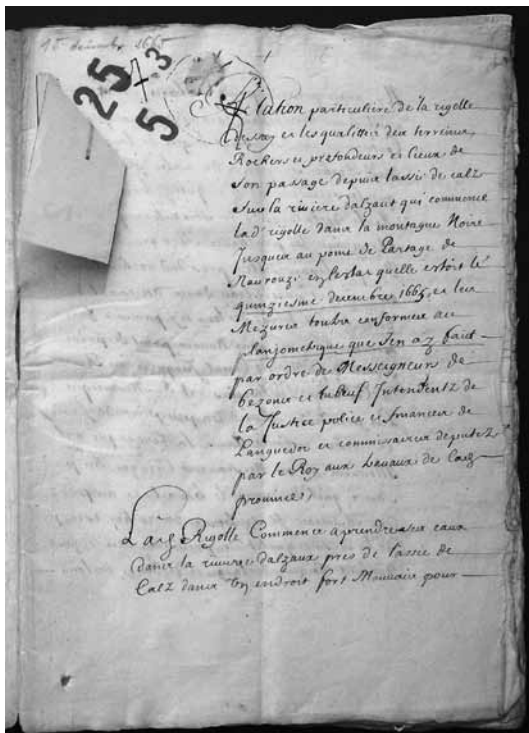 15 décembre 1665
25 + 3
5
Relation particuliere de la rigolle
dessay et les qualittés deux terreins
Rochers et profondeurs et lieux de
son passage depuix lassée de calz
sur la riviere dalzaut qui commence
lad rigolle danx la montagne Noire
Jusquex au point de Partage de
Naurouze en lestat quelle estoit le
quinziesme decembre 1665, et les
Mezures toutex conformex au
planjometrique que Jen ay faut
par ordre de Messeigneurs de
bezonx et tubeuf Intendentz de
la Justice police et finances de
Languedoc et commissaires deputez
par le Roy aux travaux de lad
province
Lad Rigolle Commence aprendre sex eaux
danx la riviere dalzaux pres de lassée de
Calz danx un endroit fort Mauvaix pour